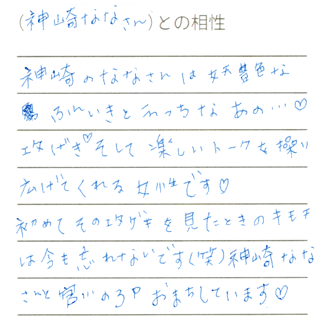 (神崎ななさん)との相性
神崎のななさんは妖艶な
ふんいきとえっちなあの…♡
攻げき♡そして楽しいトークを操り
広げてくれる女性です♡
初めてその攻ゲキを見たときのキモチ
は今も忘れないです(笑)神崎なな
さんと宮川のろP おまちしています♡